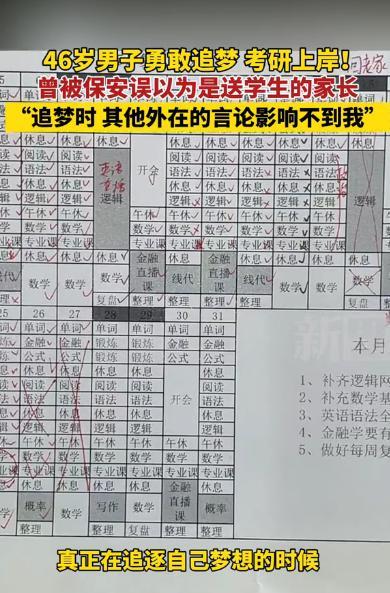 46岁男子勇敢追梦 考研上岸！
曾被保安误以为是送学生的家长
“追梦时 其他外在的言论影响不到我”
休息 休息 休息 休息 休息 休息 休息 休息
阅读 阅读 阅读 阅读 阅读 阅读
语法 语法 英语直播 开会 语法 语法 语法 逻辑
休息 休息 休息 休息 休息
逻辑 逻辑 逻辑 逻辑 逻辑 逻辑
午休 午休 午休 午休 午休 午休 午休
专业课 专业课 专业课 专业课 专业课 专业课
休息 休息 休息 金融直播课 休息 休息 休息 休息
线代 数学 数学 线代 金融直播课 数学 数学
整理 复盘 整理 整理 复盘 整理
25 26 27 28 29 30 31
单词 单词 单词 单词 单词 单词 单词
金融 金融 金融 锻炼 锻炼 金融 金融
公式 公式 公式 锻炼 锻炼 公式 公式
休息 休息 休息 休息 休息 开会 休息
阅读 阅读 阅读 阅读 阅读 阅读
语法 语法 语法 语法 语法 语法
休息 休息 休息 休息 休息 休息
午休 午休 午休 午休 午休 午休 午休
专业课 专业课 专业课 专业课 专业课 专业课 专业课
休息 休息 休息 休息 休息 金融直播课 休息
数学 概率 数学 写作 数学 概率
整理 整理 复盘 整理 整理
本月
1、补齐逻辑网
2、补充数学基
3、英语语法全
4、金融学要有
5、做好每周复
真正在追逐自己梦想的时候